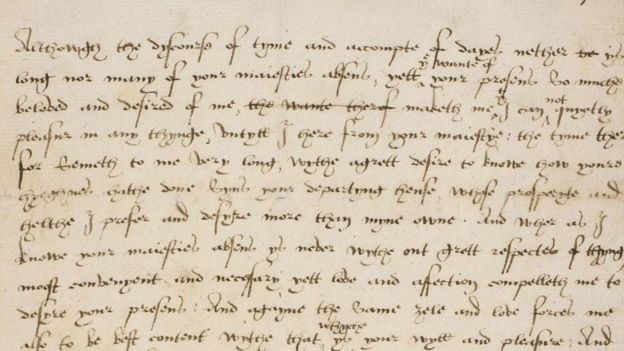 Althowgth the dyscourse of tyme and accompte of dayes nether be ys
ye wante of
long nor many of your maiesties absens, yett your presens So muche
beloved and desired of me, the wante therof maketh me, yt I can not quyetly
pleasur in any thynge, untyll I here from your maiestye: the tyme ther
for Semeth to me very long, wythe a grett desire to knowe how youre
hyeghnes hathe done Syns your departyng hense whose prosperyte and
helthe I prefer and desyre more than myne owne. And wher as I
knowe your maiesties absens ys never wythe out grett respectes of thyngs
most convenyent and necessary, yett love and affection compelleth me to
desyre your presens. And agayne the Same zele and love forces me
whyche
also to be best content wythe that ys your wyll and pleasure: And